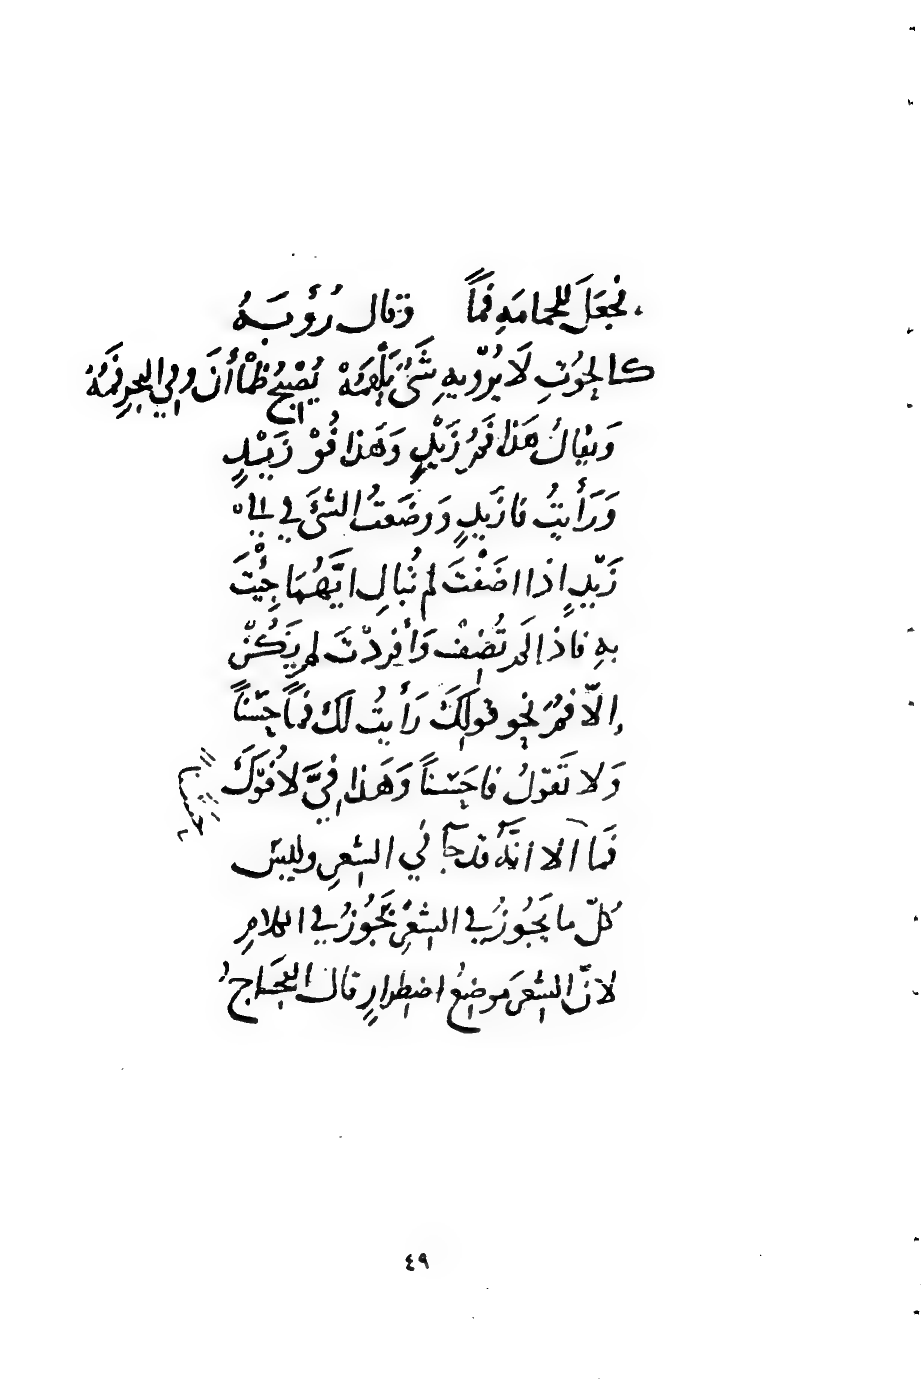 فجَعَلَ للحمامَةِ فَمًا وقال رُؤبَةُ
كالحُوتِ لَا يُرْوِيهِ شَيْءٌ يَلْهَمُهْ يُصْبِحُ ظَمْأنَ وفي البحرِ فَمُهْ
وَيقالُ هَذَا فَمُ زَيْدٍ وَهَذا فُوْ زَيْدٍ
وَرَأيتُ فا زَيدٍ وَوضَعتُ الشئَ في في
زَيْدٍ اذا اضَفْتَ لم تُبالِ ايَّهُمَا جِئْتَ
بهِ فاذا لَم تُضِفْ وَأفردْتَ لم يَكُنْ
إلّا فَمٌ نحو قولِكَ رَأيتُ لَكَ فَمًا حَسَنًا
وَلا تَقولُ فا حَسَنًا وَهَذا فِيَّ لا فُوكَ
حَسَنٌ
فَما الا انَّهُ قد جآ في الشعرِ وليسَ
كُلّ ما يَجُوزُ في الشعْرِ يَجُوزُ في الكلامِ
لانّ الشعْرَ موضِعُ اضطرارٍ قال العَجَّاجُ
٤٩